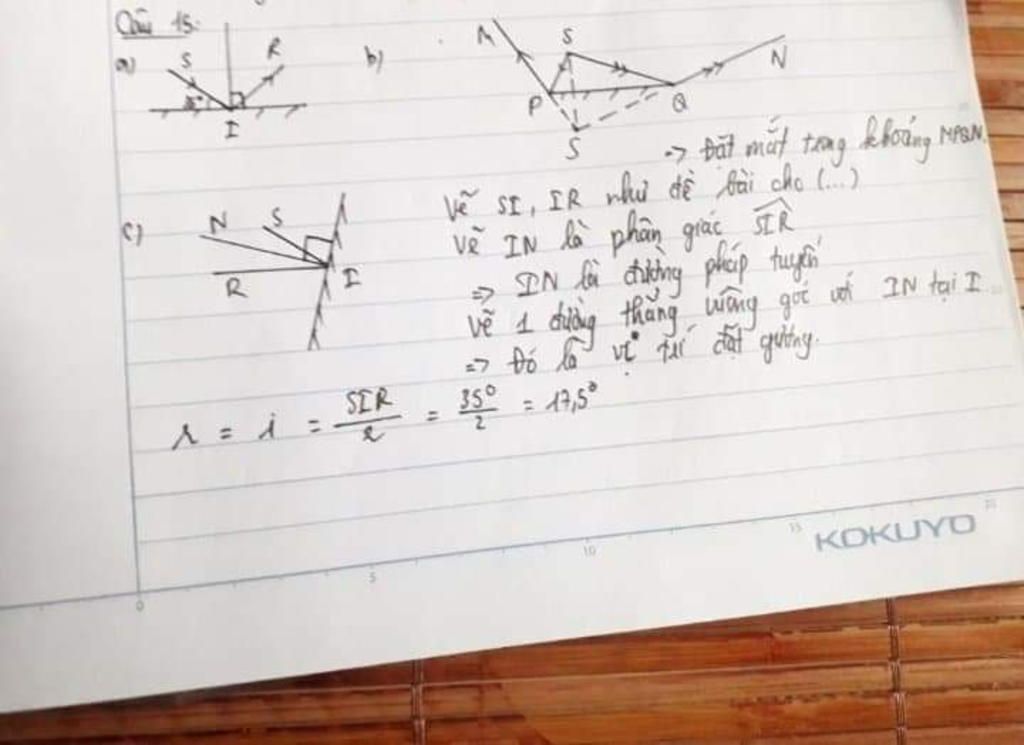 Câu 15:
a)
S
R
I
b)
M
S
N
P
Q
S
=> Đặt mắt trong khoảng MPQN.
c)
N
S
R
I
Vẽ SI, IR như đề bài cho (...)
Vẽ IN là phân giác SIR
=> IN là đường pháp tuyến
Vẽ 1 đường thẳng vuông góc với IN tại I
=> Đó là vị trí đặt gương.
r = i = SIR/2 = 35°/2 = 17,5°
0 5 10 15 20
KOKUYO